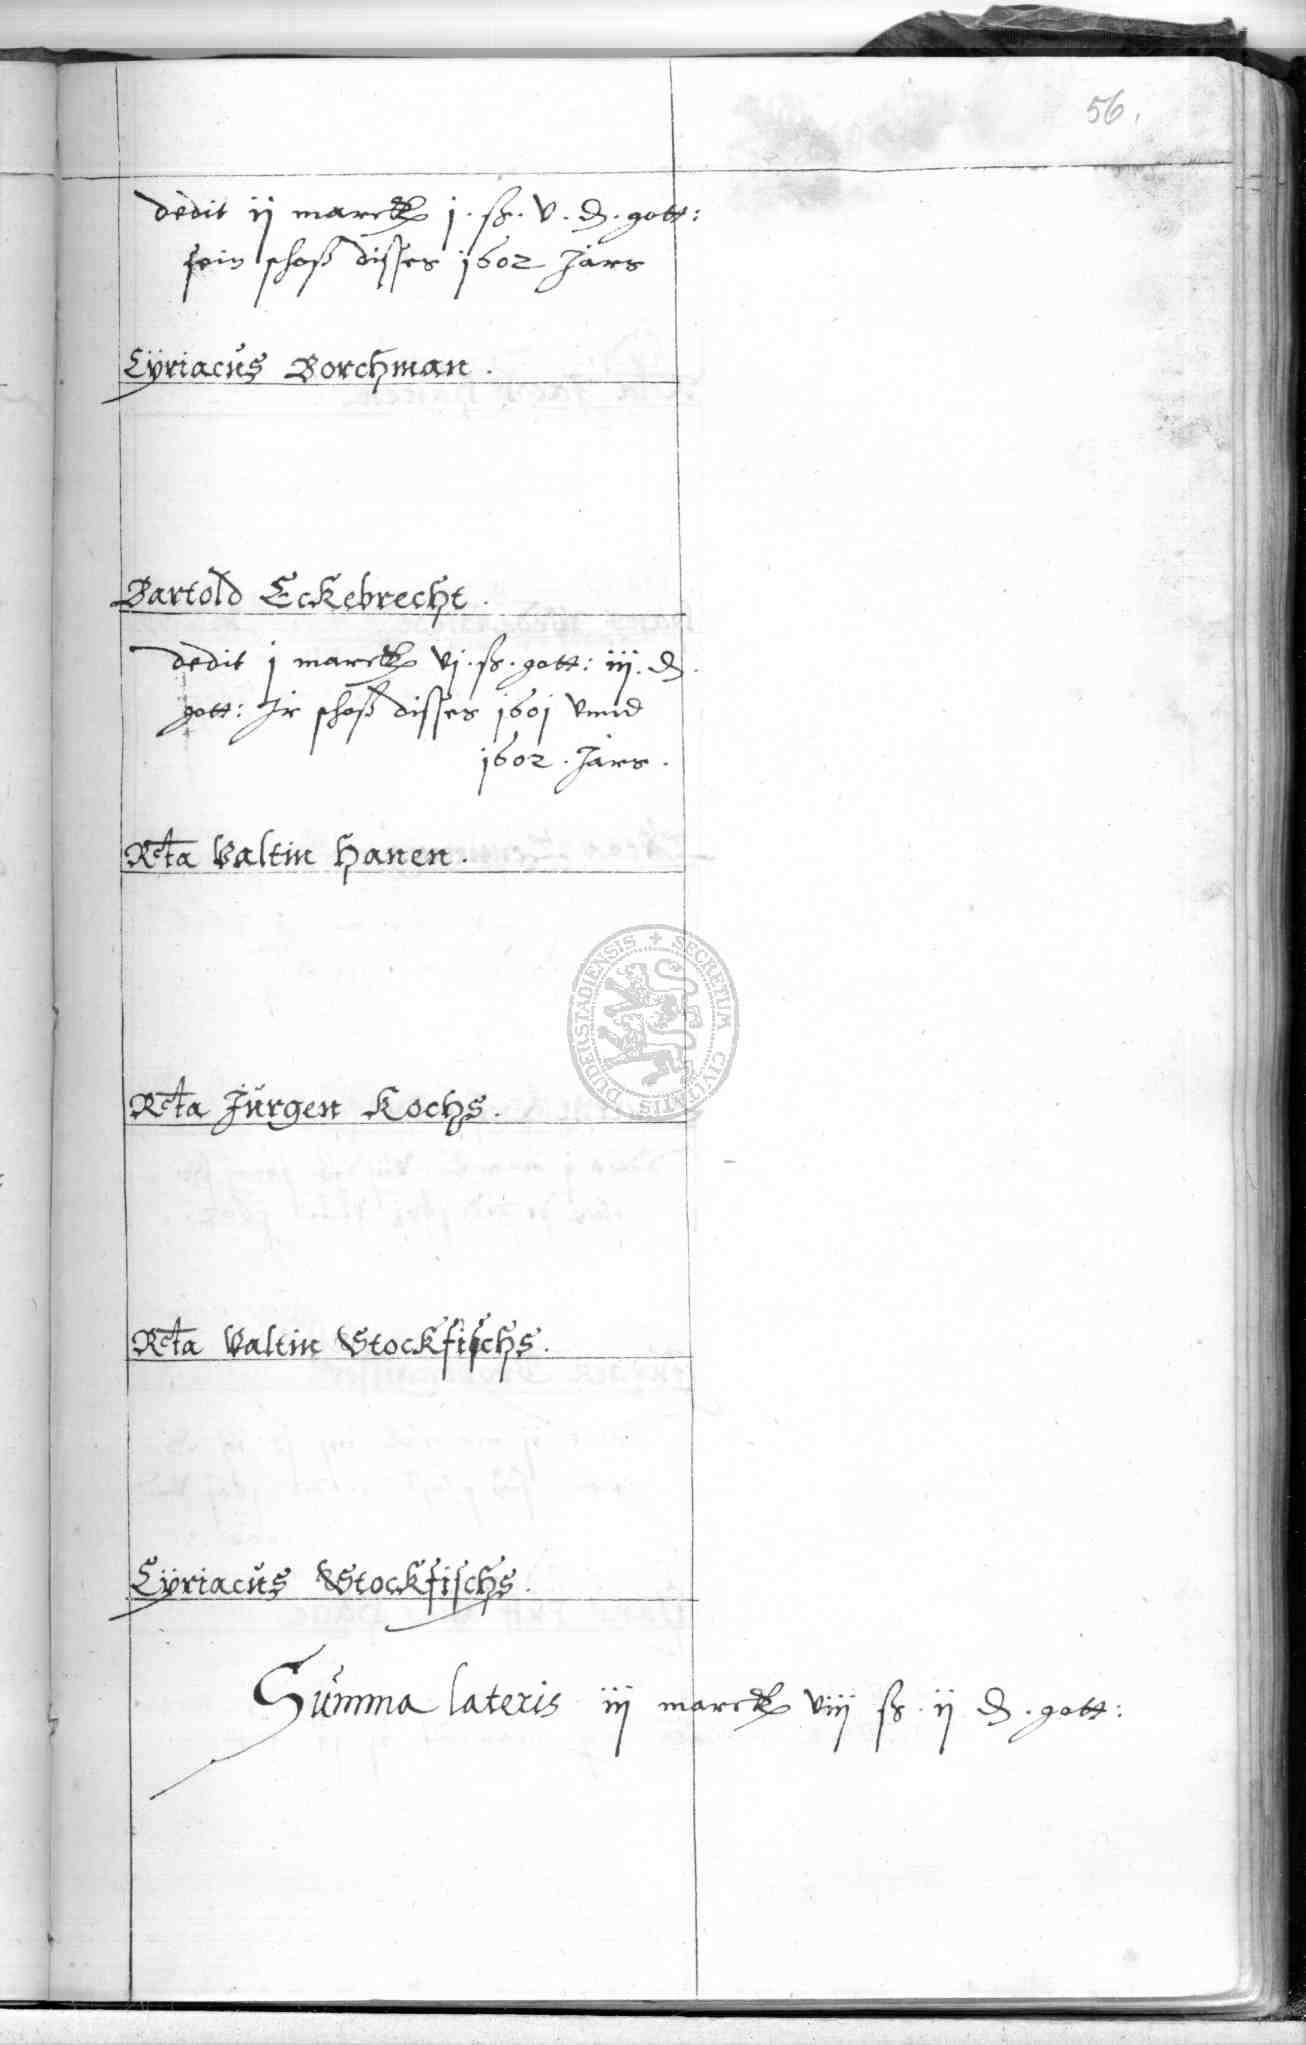 56.
dedit ij marck j. ß. v. d. gott:
sein schoß disses 1602 Jars
Cÿriacus Borchman.
Bartold Eckebrecht.
dedit j marck vj. ß. gott: iij. d.
gott: Ir schoß disses 1601 vnnd
1602. Jars.
Rcta Valtin Hanen.
SECRETUM CIVITATIS DUDERSTADIENSIS
Rcta Jürgen Kochs.
Rcta Valtin Stockfischs.
Cÿriacus Stockfischs.
Summa lateris iij marck viij ß. ij d. gott: